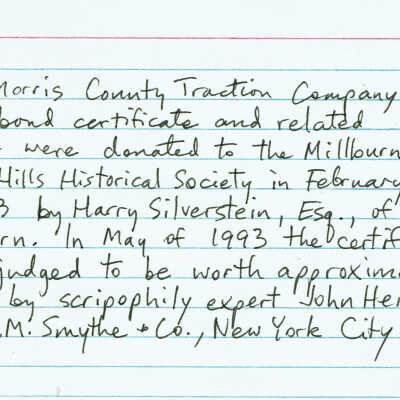 Morris County Traction Company
bond certificate and related
were donated to the Millburn
Hills Historical Society in February
3 by Harry Silverstein, Esq., of
rn. In May of 1993 the certif
judged to be worth approxim
by scripophily expert John Her
.M. Smythe + Co., New York City